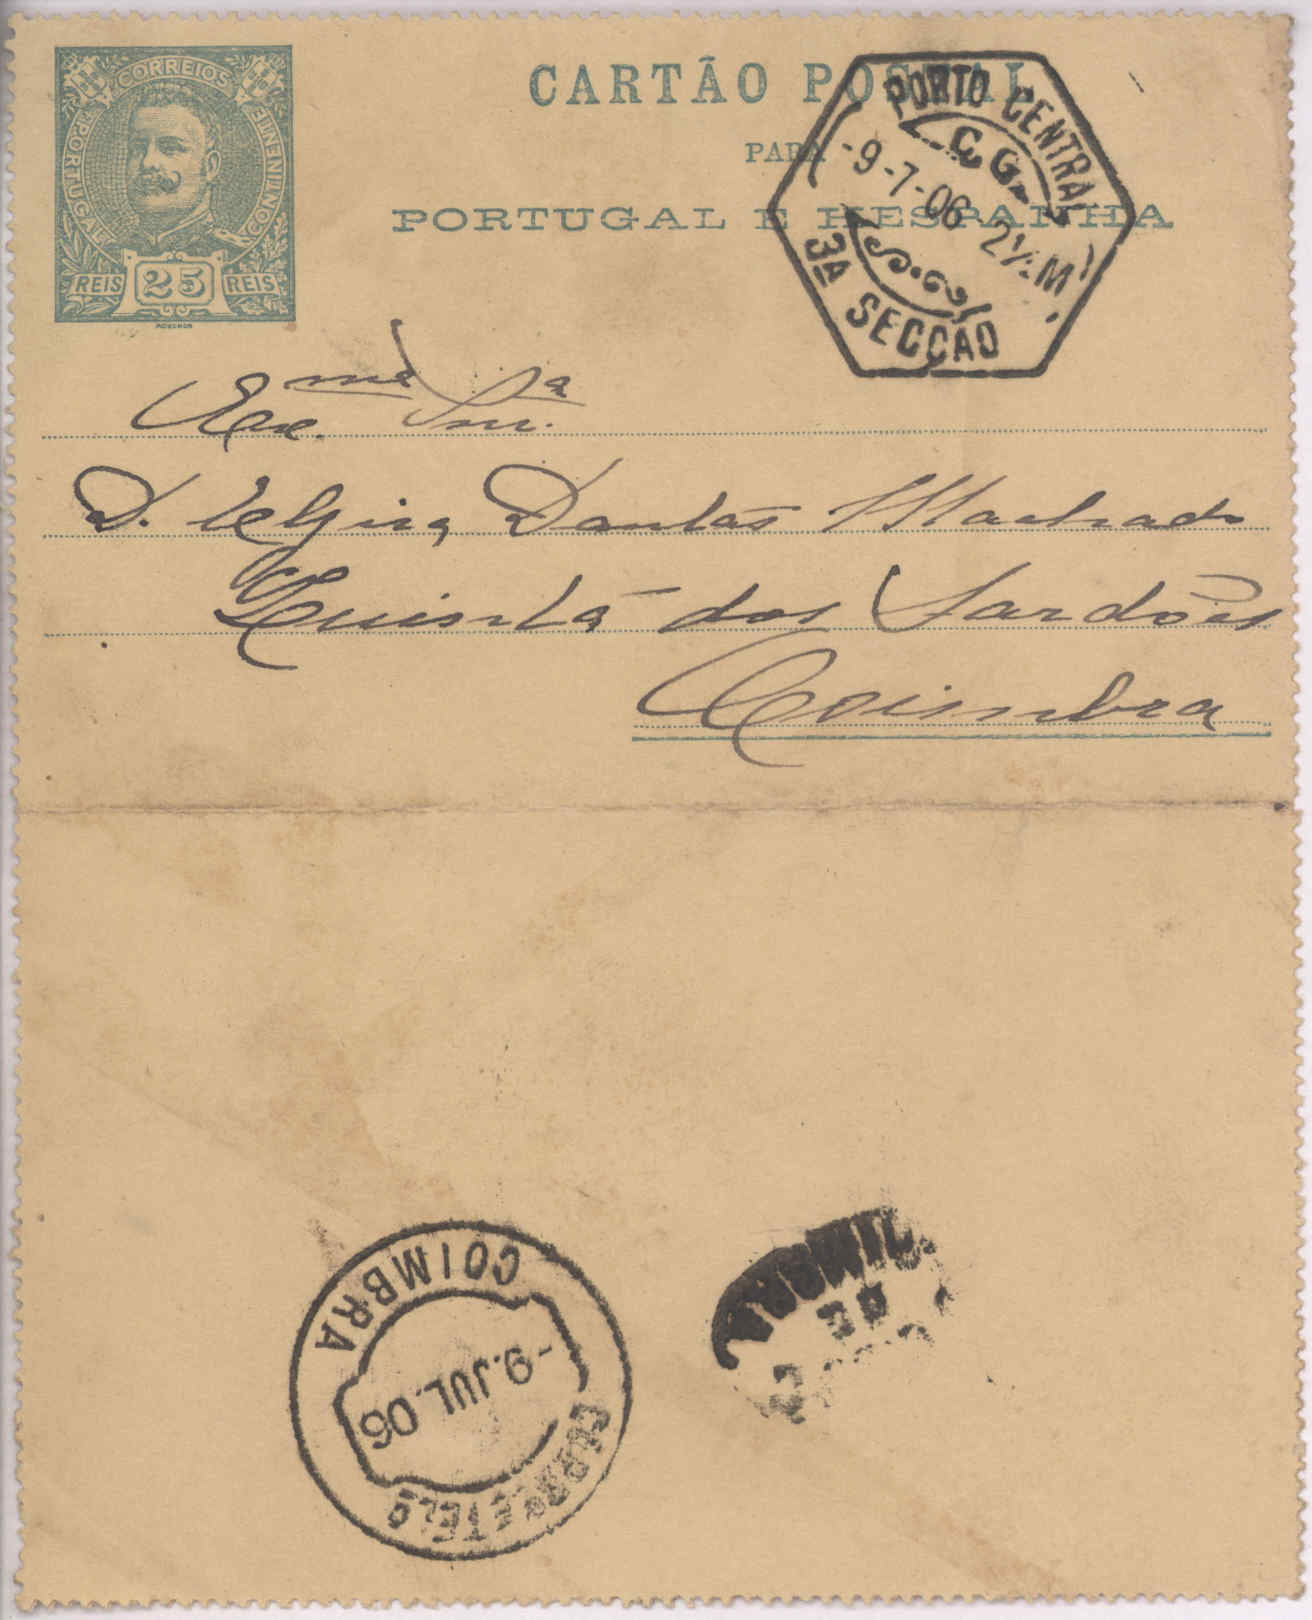 CORREIOS
PORTUGAL
CONTINENTE
REIS 25 REIS
MOUCHON
CARTÃO POSTAL
PARA
PORTUGAL E HESPANHA
PORTO CENTRAL
C. G.
-9-7-06 2½M
3A SECCÃO
Exc.ma Snr.a
D. Elzira Dantas Machado
Quinta dos Sardões
Coimbra
COIMBRA
-9.JUL.06
CORRº E TELº